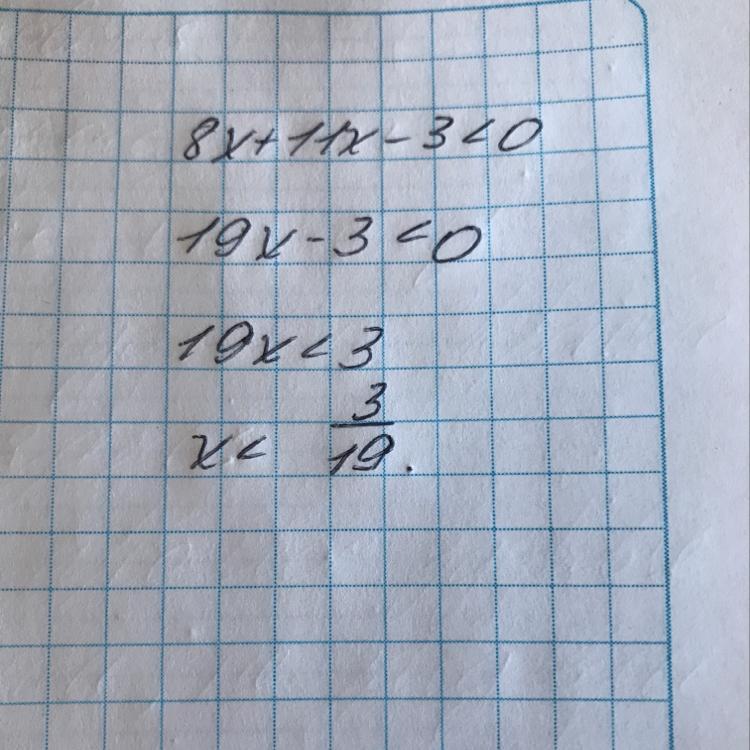 8x+11x-3<0
19x-3<0
19x<3
x< 3/19.